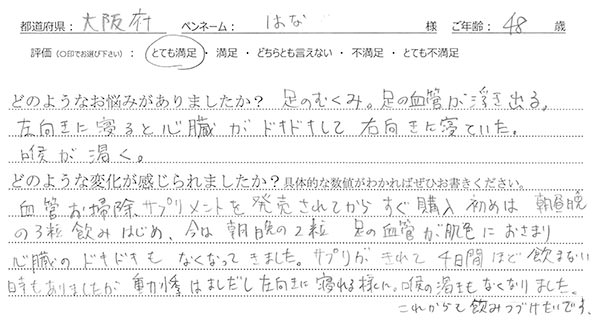 都道府県：大阪府 ペンネーム：はな 様 ご年齢：48 歳
評価（○印でお選び下さい）：とても満足・満足・どちらとも言えない・不満足・とても不満足
どのようなお悩みがありましたか？ 足のむくみ。足の血管が浮き出る。
左向きに寝ると心臓がドキドキして右向きに寝ていた。
喉が渇く。
どのような変化が感じられましたか？具体的な数値がわかればぜひお書きください。
血管お掃除サプリメントを発売されてからすぐ購入 初めは 朝昼晩
の3粒飲みはじめ、今は朝晩の2粒 足の血管が肌色におさまり
心臓のドキドキもなくなってきました。サプリがきれて4日間ほど飲まない
時もありましたが動悸はましだし左向きに寝れる様に。喉の渇きもなくなりました。
これからも飲みつづけたいです。